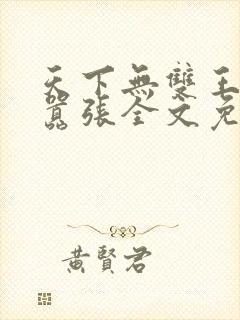 天下無雙王
囂張全文免
黃賢君